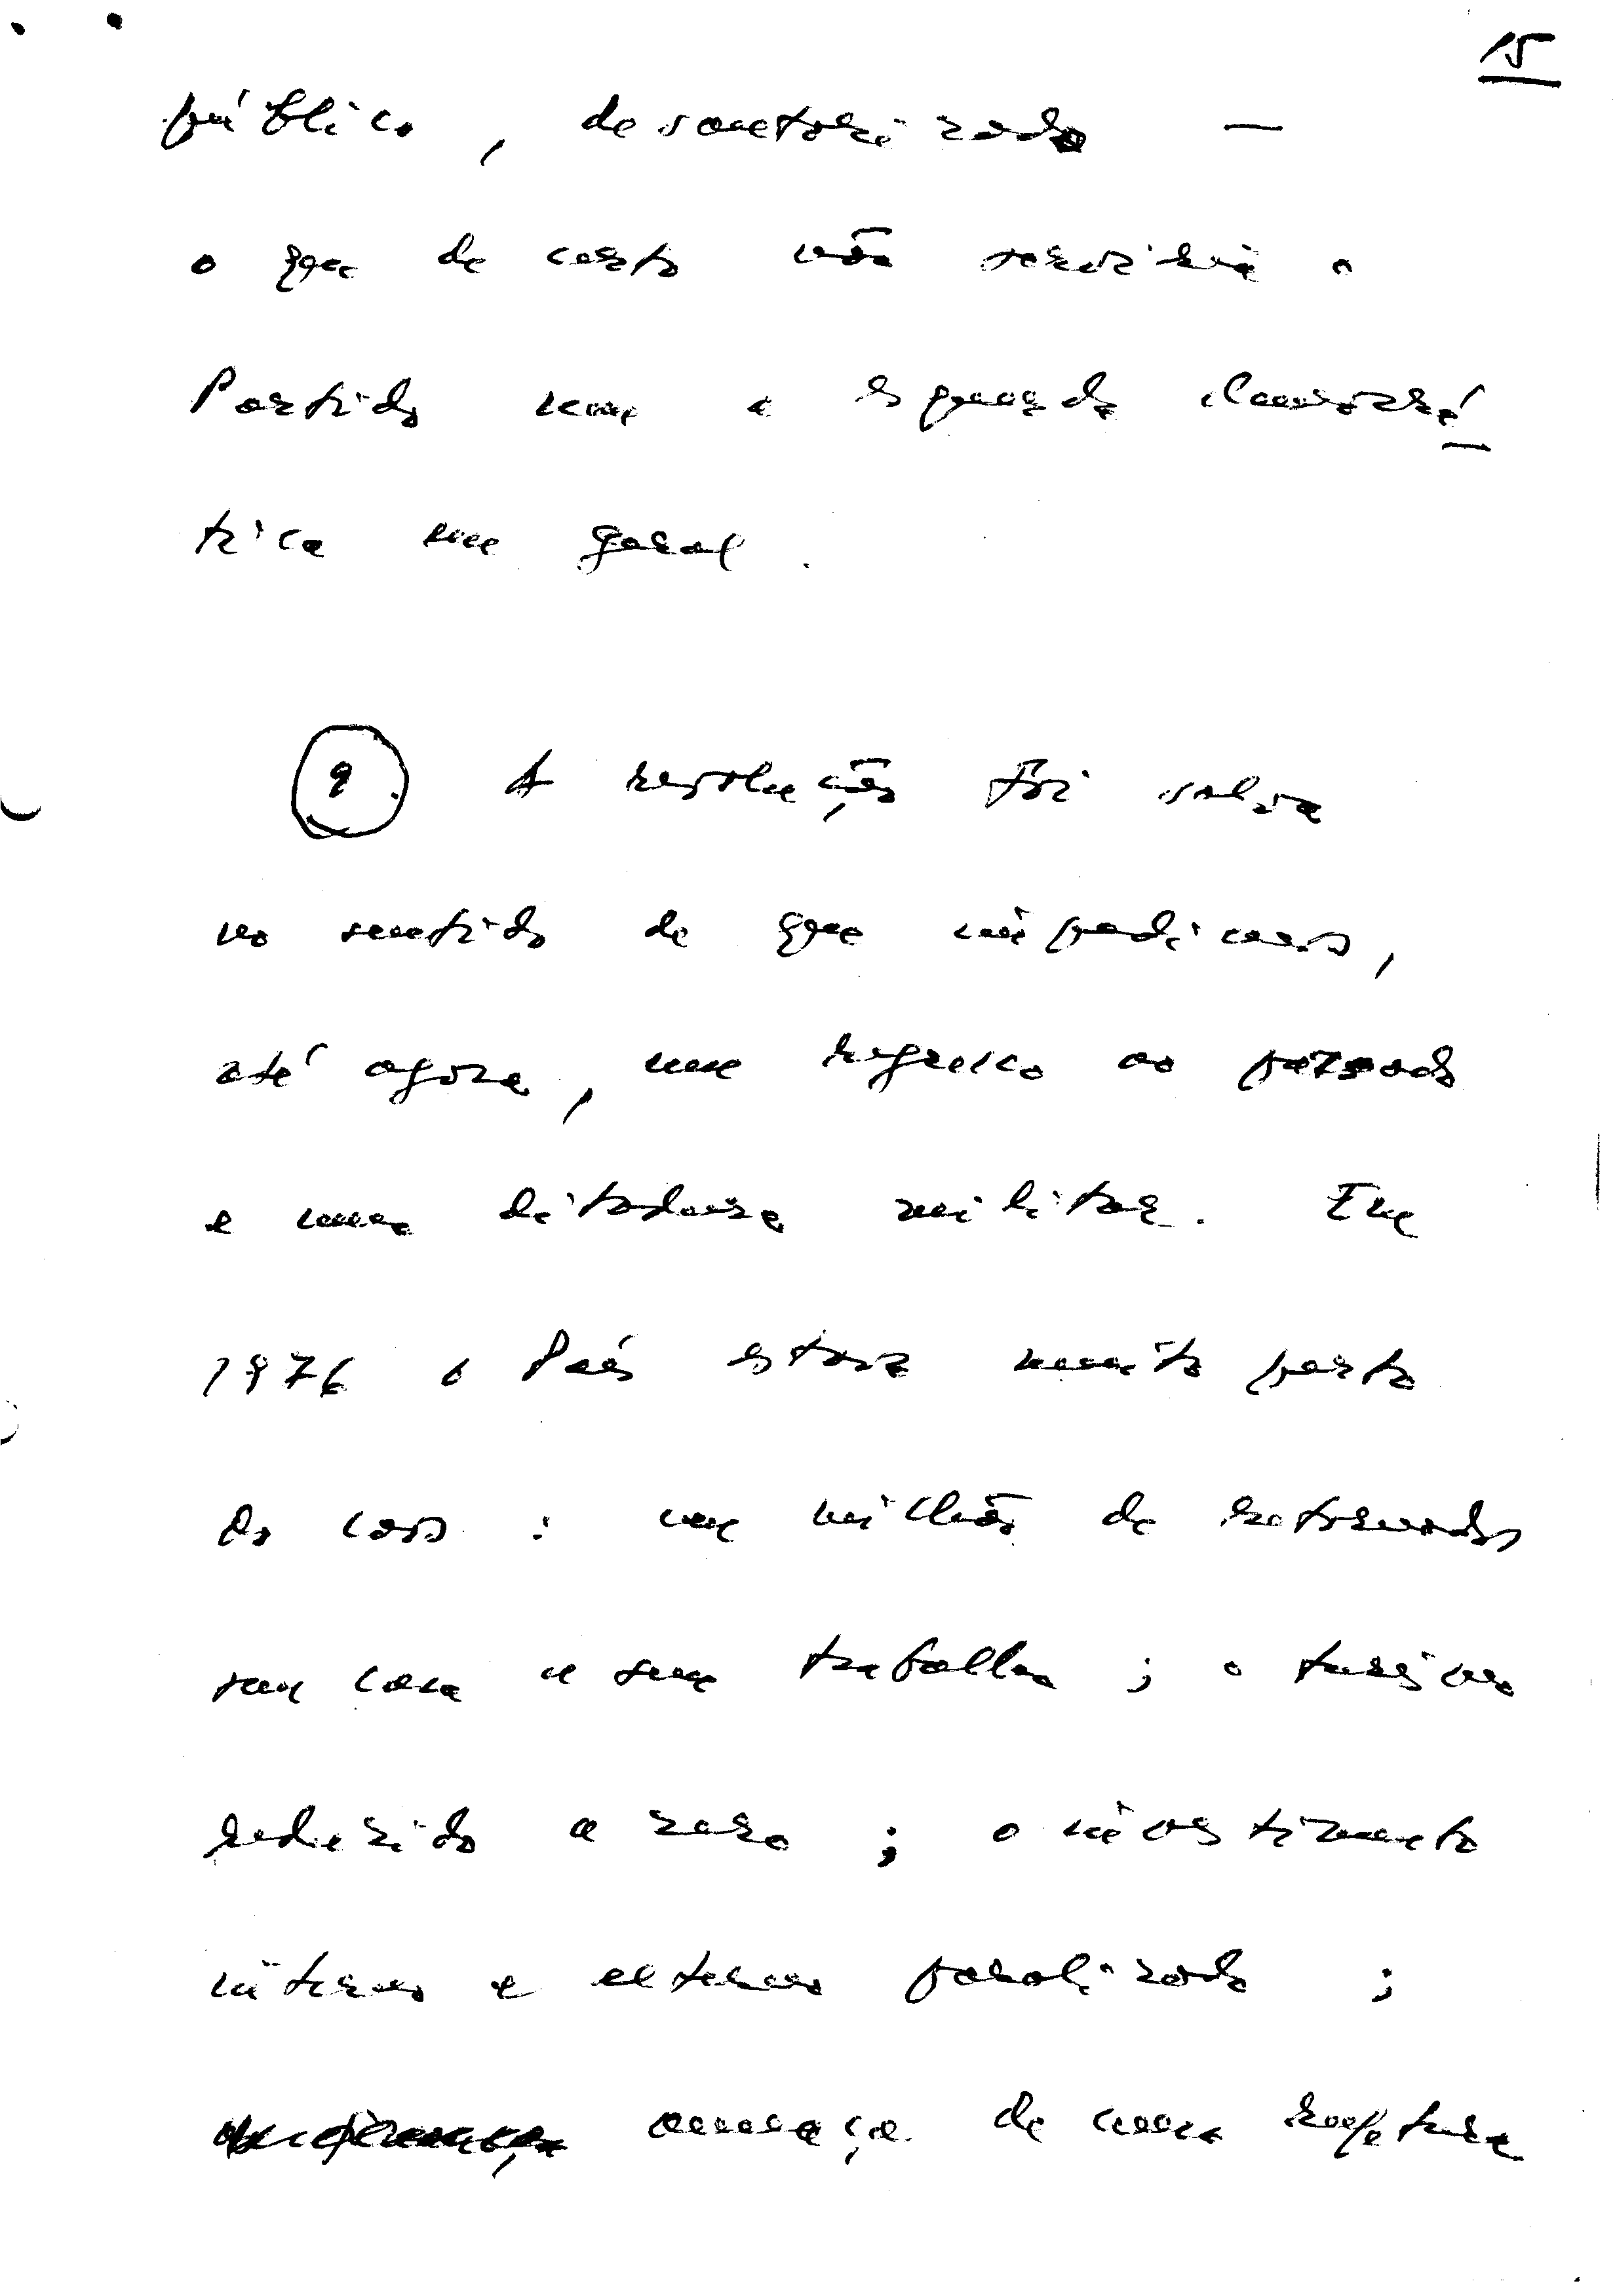 15
público, desautorizado —
o que de certo não serviria o
Partido nem a esquerda democrá-
tica em geral.
9. A revolução foi salva
no sentido de que impedimos,
até agora, um regresso ao passado
e uma ditadura militar. Em
1976 o País estava muito perto
do caos: um milhão de retornados
sem casa e sem trabalho; o turismo
reduzido a zero; o investimento
interno e externo paralizado;
ameaça de uma ruptura